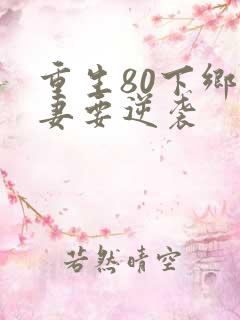 重生80下乡
妻要逆袭
若然晴空